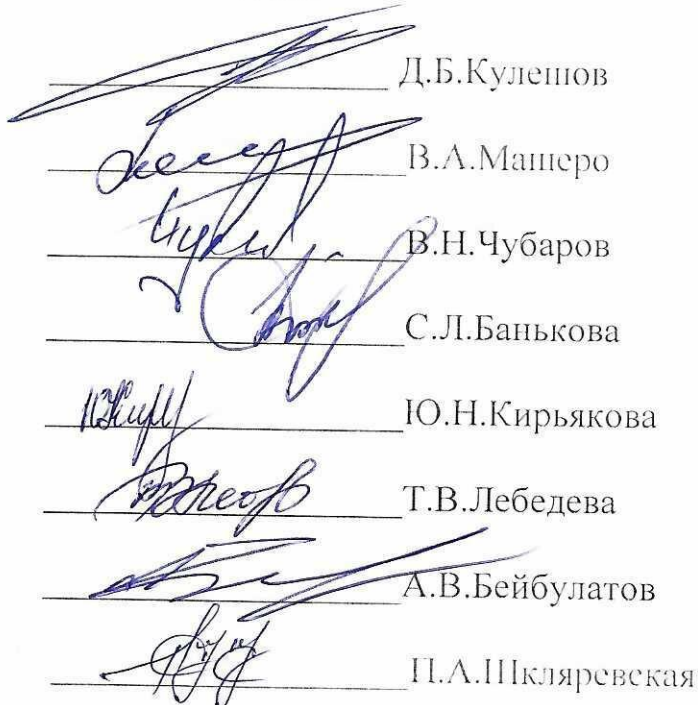 Д.Б.Кулешов
В.А.Машеро
В.Н.Чубаров
С.Л.Банькова
Ю.Н.Кирьякова
Т.В.Лебедева
А.В.Бейбулатов
П.А.Шкляревская